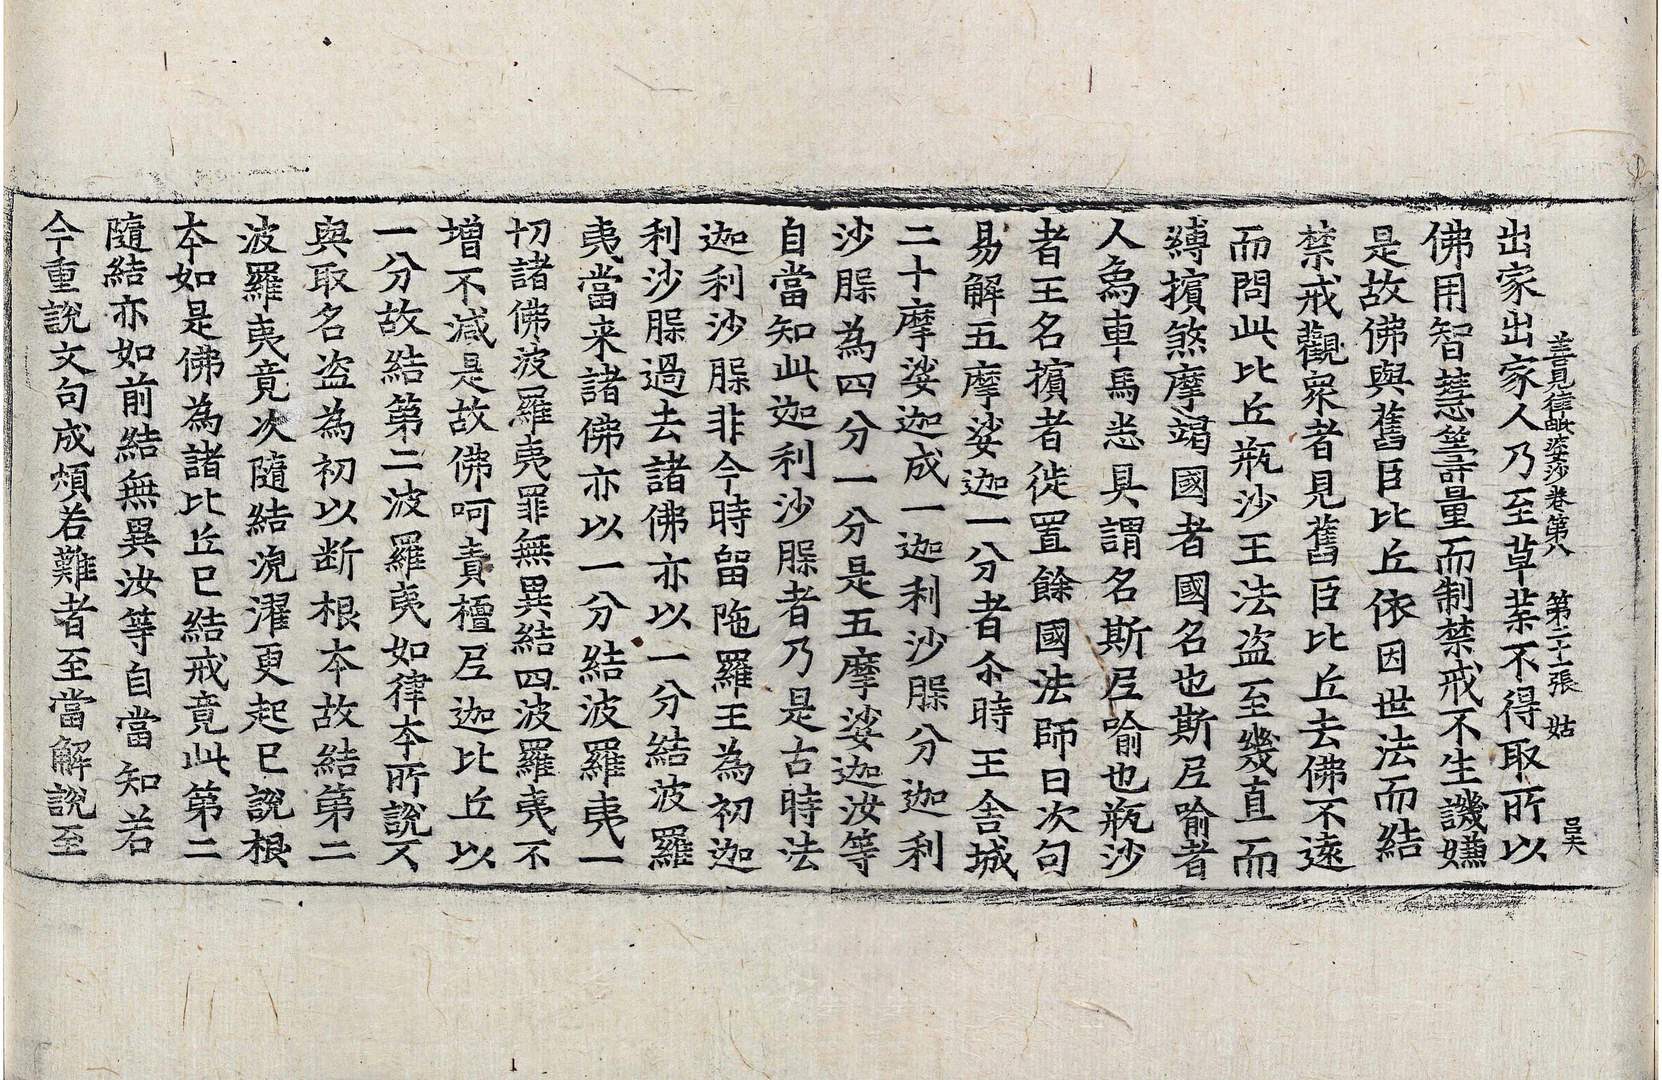 善見律毗婆沙卷第八　第二十張　姑　吴
出家出家人乃至草葉不得取所以
佛用智慧籌量而制禁戒不生譏嫌
是故佛與舊臣比丘依因世法而結
禁戒觀衆者見舊臣比丘去佛不遠
而問此比丘瓶沙王法盗至幾直而
縛擯煞摩竭國者國名也斯𡰱喻者
人為車馬悉具謂名斯𡰱喻也瓶沙
者王名擯者徙置餘國法師曰次句
易解五摩娑迦一分者尒時王舍城
二十摩娑迦成一迦利沙腂分迦利
沙腂為四分一分是五摩娑迦汝等
自當知此迦利沙腂者乃是古時法
迦利沙腂非今時留陁羅王為初迦
利沙腂過去諸佛亦以一分結波羅
夷當来諸佛亦以一分結波羅夷一
切諸佛波羅夷罪無異結四波羅夷不
增不減是故佛呵責檀𡰱迦比丘以
一分故結第二波羅夷如律本所說不
與取名盗為初以断根本故結第二
波羅夷竟次隨結浣濯更起已說根
本如是佛為諸比丘已結戒竟此第二
隨結亦如前結無異汝等自當知若
今重說文句成煩若難者至當解說至